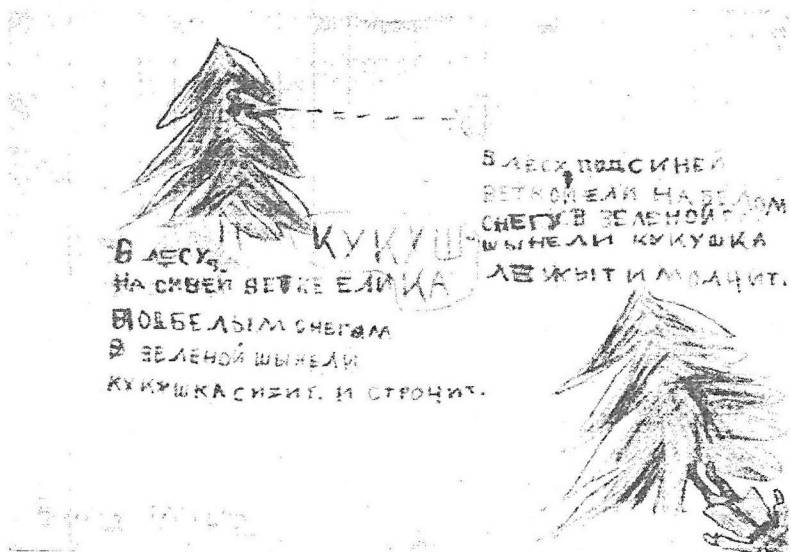 КУКУШ
КА
В ЛЕСУ,
НА СИНЕЙ ВЕТКЕ ЕЛИ
ПОД БЕЛЫМ СНЕГОМ
В ЗЕЛЕНОЙ ШЫНЕЛИ
КУКУШКА СИДИТ. И СТРОЧИТ.
В ЛЕСУ, ПОД СИНЕЙ
ВЕТКОЙ ЕЛИ НА БЕЛОМ
СНЕГУ В ЗЕЛЕНОЙ
ШЫНЕЛИ КУКУШКА
ЛЕЖЫТ И МОЛЧИТ.